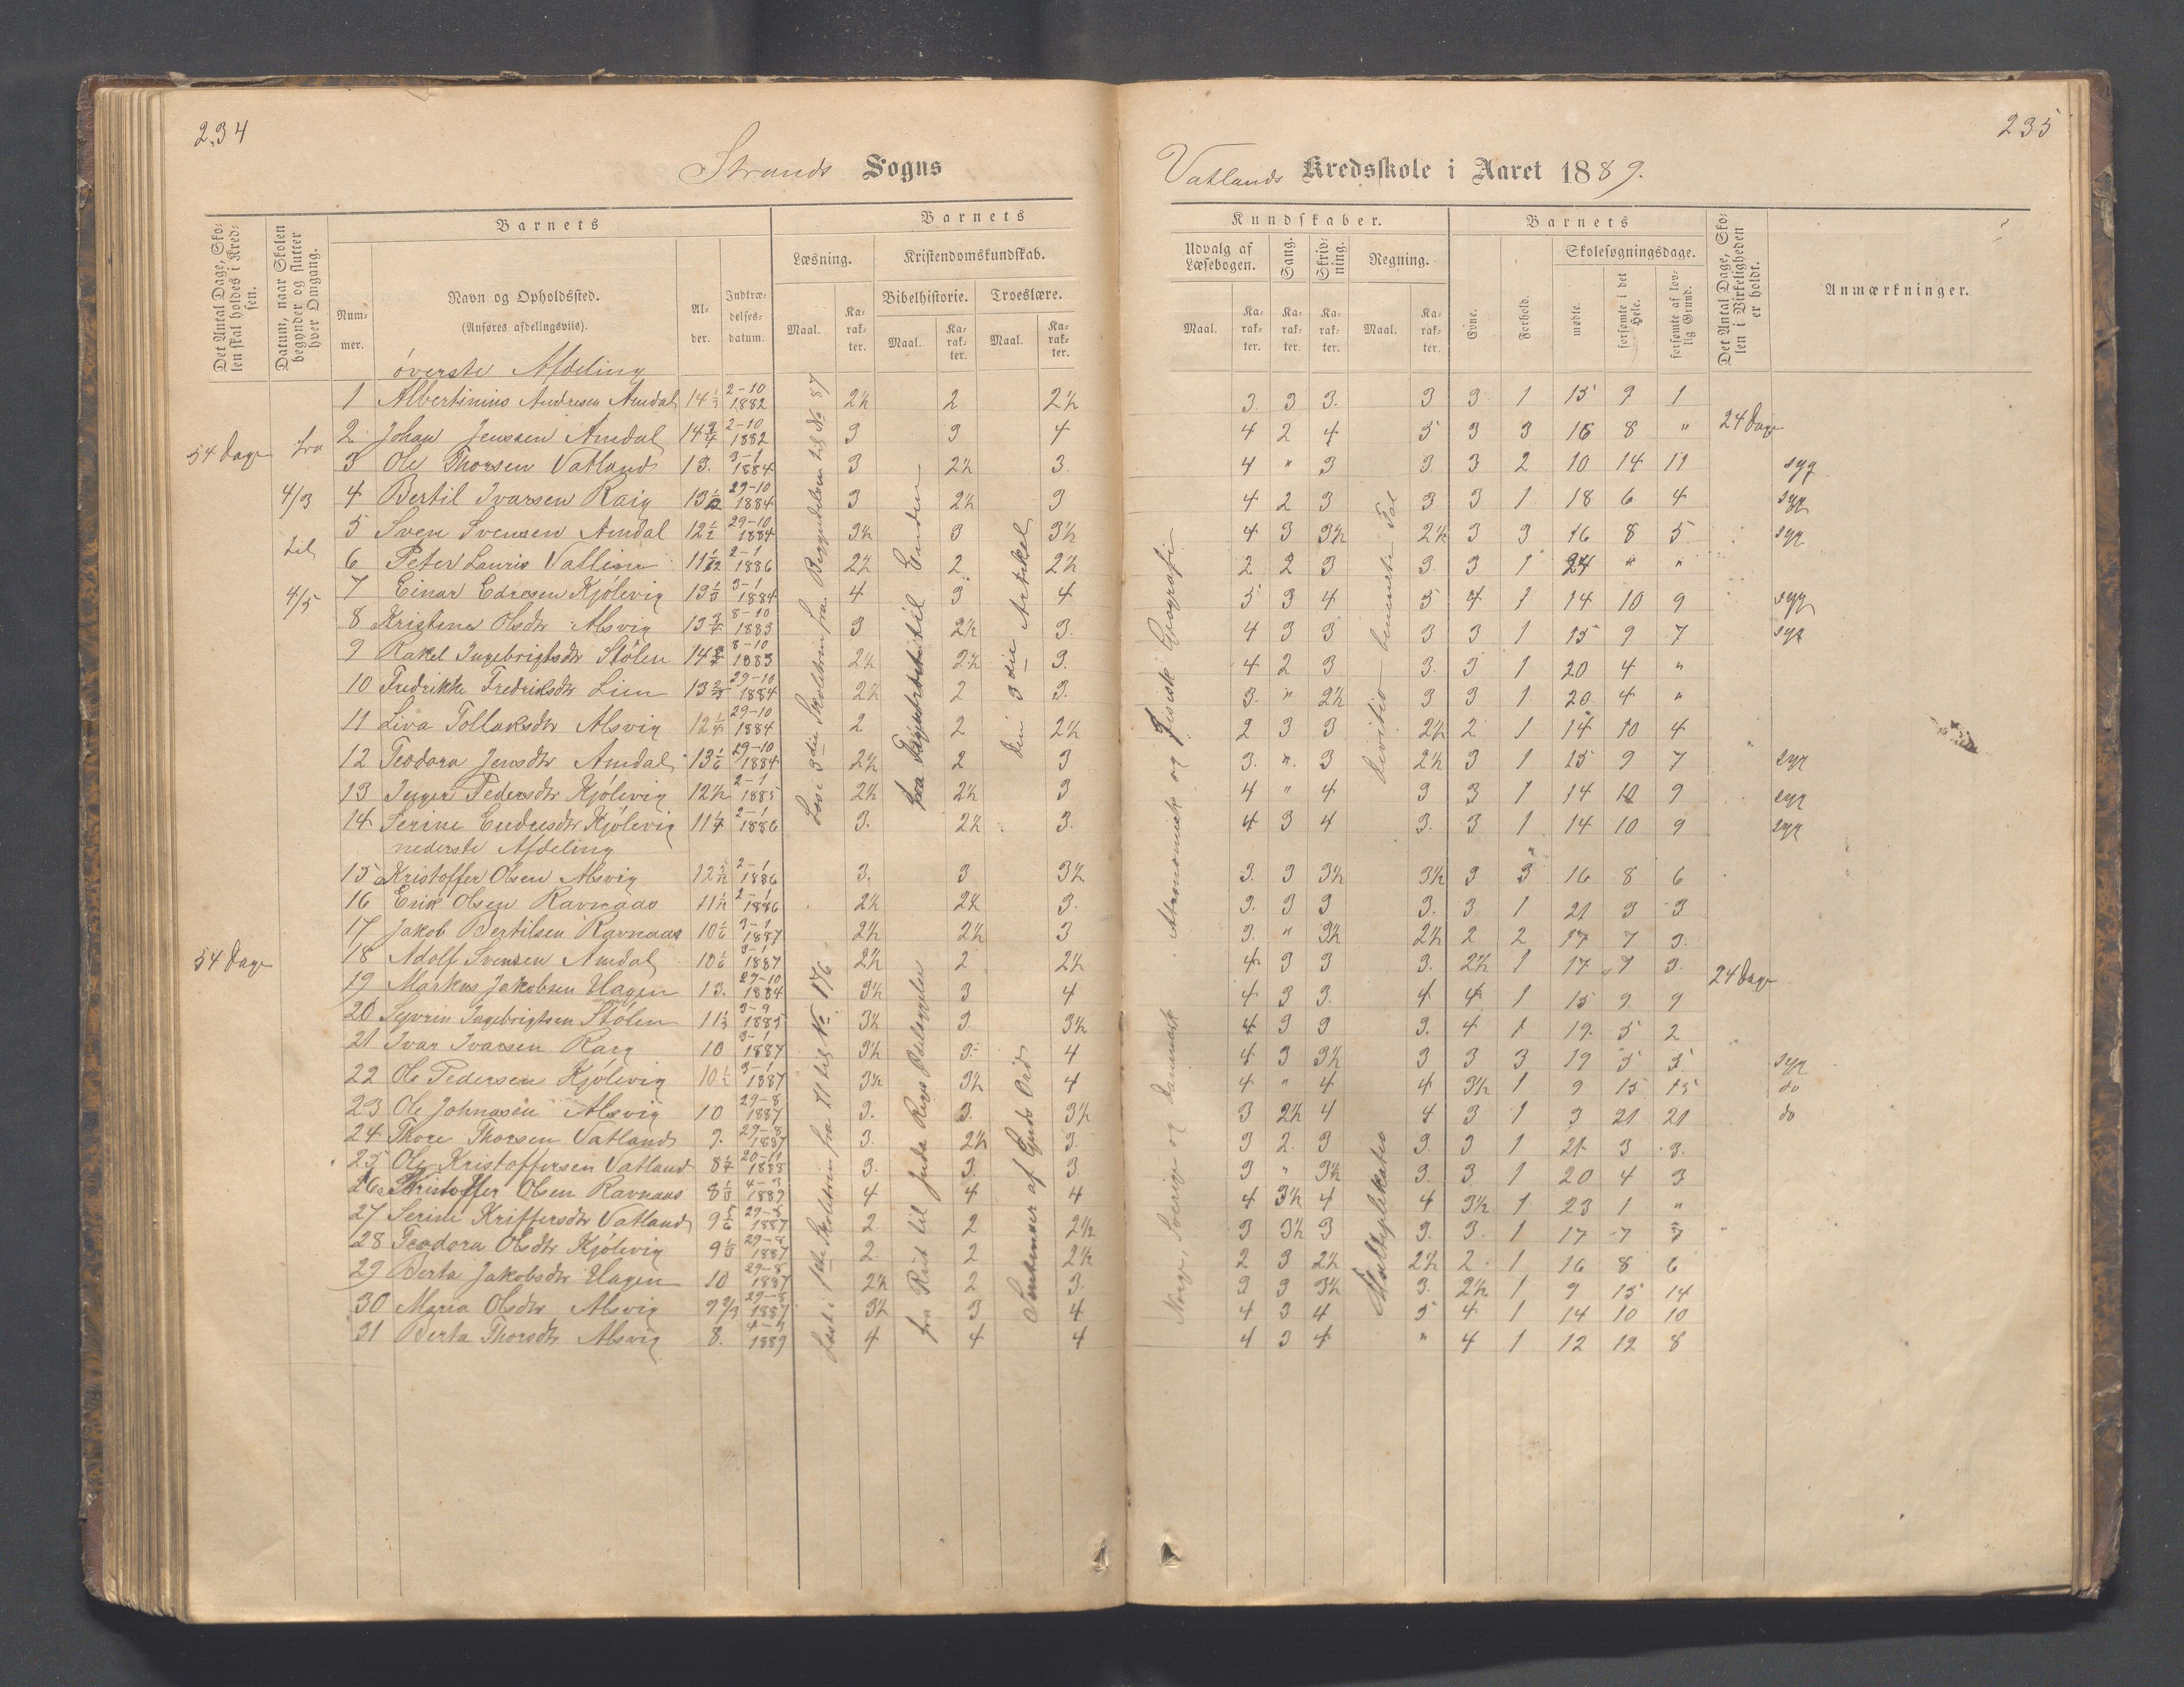 234
Strands Sogns
Det Antal Dage, Skolen skal holdes i Kredsen.
Datum, naar Skolen begynder og slutter hver Omgang.
Barnets
Nummer.
Navn og Opholdssted.
(Anføres afdelingsviis).
Alder.
Indtrædelsesdatum.
Barnets
Læsning.
Kristendomskundskab.
Bibelhistorie.
Troeslære.
Maal.
Karakter.
Maal.
Karakter.
Maal.
Karakter.
øverste Afdeling
1 Albertinius Andresen Amdal 14 1/3 2-10 1882 2½ 2 2½
2 Johan Jenssen Amdal 14 3/4 2-10 1882 3 3 4
3 Ole Thorsen Vatland 13. 3-1 1884 3 2½ 3.
4 Bertil Ivarsen Raig 13 1/2 29-10 1884 3 2½ 3
5 Sven Svensen Amdal 12 1/2 29-10 1884 3½ 3 3½
6 Peter Lauris 2-1 1886 2½ 2 2½
7 Einar Kjölevig 13 1/3 3-1 1884 4 3 4
8 Kristine Olsdtr Alsvig 13 3/4 8-10 1883 3 2½ 3.
9 Rakel Ingebrigtsdtr Stölen 8-10 1883 2½ 2½ 3.
10 Fredrikke Fredriksdtr Lim 29-10 1884 2½ 2 3.
11 Liva Tollaksdtr Alsvig 29-10 1884 2 2 2½
12 Teodora Jensdtr Amdal 13 1/6 29-10 1884 2½ 2 3
13 Inger Pedersdtr Kjölevig 12½ 2-1 1885 2½ 2½ 3
14 Serine Endresdtr Kjölevig 11 1/4 2-1 1886 3. 2½ 3.
nederste Afdeling
15 Kristoffer Olsen Alsvig 12½ 2-1 1886 3. 3 3½
16 Erik Olsen Ravnaas 11½ 2-1 1886 2½ 2½ 3.
17 Jakob Bertilsen Ravnaas 10 1/6 3-1 1887 2½ 2½ 3
18 Adolf Svensen Amdal 10 1/6 3-1 1887 2½ 2 2½
19 Markus Jakobsen Hagen 13. 29-10 1884 3½ 3 4
20 Syvrin Ingebrigtsen Stölen 11 1/3 3-9 1885 3½ 3. 3½
21 Ivar Ivarsen Raig 10 3-1 1887 3½ 3- 4
22 Ole Pedersen Kjölevig 10½ 3-1 1887 3½ 3½ 4
23 Ole Johnasen Alsvig 10 29-8 1887 3. 3. 3½
24 Thore Thorsen Vatland 9. 29-8 1887 3. 2½ 3.
25 Ole Kristoffersen Vatland 20-11 1888 3. 3. 3
26 Kristoffer Olsen Ravnaas 8 1/3 4-3 1889 4 4 4
27 Serine Vatland 9 5/6 29-8 1887 2. 2 2½
28 Teodora Olsdtr Kjölevig 9 1/3 29-8 1887 2. 2 2½
29 Berta Jakobsdtr Hagen 10 29-8 1887 2½ 2 3.
30 Maria Olsdtr Alsvig 9 2/3 29-8 1887 3½ 3 4
31 Berta Thorsdtr Alsvig 8. 4-3 1889 4 4 4
54 Dage fra
4/3
til
4/5
54 Dage
Læse 3die Skoletrin fra Begyndelsen til No 87
til Enden
den 3die Artikel
Læst i 1ste Skoletrin fra 71 til No 176
fra Rut til Juda Riges Ödelæggelse
Sentenser af Guds Ord
235
Vatlands Kredsskole i Aaret 1889.
Kundskaber.
Udvalg af Læsebogen.
Sang.
Skrivning.
Regning.
Maal.
Karakter.
Karakter.
Karakter.
Maal.
Karakter.
Barnets
Evne.
Forhold.
Skolesøgningsdage.
mødte.
forsømte i det Hele.
forsømte af lovlig Grund.
Det Antal Dage, Skolen i Virkeligheden er holdt.
Anmærkninger.
3 3 3. 3 3 1 15 9 1
4 2 4 5 3 3 16 8 "
4 " 3 3 3 2 10 14 11 syg
4 2 3 3 3 1 18 6 4 syg
4 3 3½ 2½ 3 3 16 8 5 syg
2 2 3 3. 3 1 24 " "
5 3 4 5 4 1 14 10 9 syg
4 3 3 3 3 1 15 9 7 syg
4 2 3 3. 3 1 20 4 "
3. " 2½ 3 3 1 20 4 "
2 3 3 2½ 2 1 14 10 4
3. " 3 2½ 3 1 15 9 7 syg
4 " 4 3 3 1 14 10 9 syg
4 3 4 3. 3 1 14 10 9 syg
3. 3 3½ 3½ 3 3 16 8 6
3. 3 3 3. 3 1 21 3 3
3. " 3½ 2½ 2 2 17 7 3.
4 3 3 3. 2½ 1 17 7 3.
4 3 3. 4 4 1 15 9 9
4 3 3 3. 4 1 19 5 2
4 3 3½ 3 3 3 19 5 5 syg
4 " 4 4 3½ 1 9 15 15 do
3 2½ 4 4 3 1 3 21 21 do
3 2. 3 3. 3 1 21 3 3.
3 " 3½ 3. 3 1 20 4 3
4 3½ 4 4 3½ 1 23 1 "
3 3½ 3 3. 3. 1 17 7 7
2 3 2½ 2½ 2 1 16 8 6
3 3 3½ 3. 2½ 1 9 15 14
4 3 4 5 4 1 14 10 10
4 3 4 " 4 1 12 12 8
24 Dage
24 Dage
Astronomisk og fisisk Geografi
Norge, Sverige og Danmark
Division benevnte Tal
Multiplikation